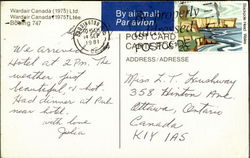 Wardair Canada (1975) Ltd.
Wardair Canada (1975) Ltée
Boeing 747
By air mail
Par avion
1981
POST CARD
ADDRESS / ADRESSE
We arrived
Hotel at 2 P.M. The
weather just
beautiful & hot
Had dinner at Pub
near hotel
with love
Julia
Miss L. T.
358 Hinton Ave.
Ottawa, Ontario
Canada
K1Y 1A5